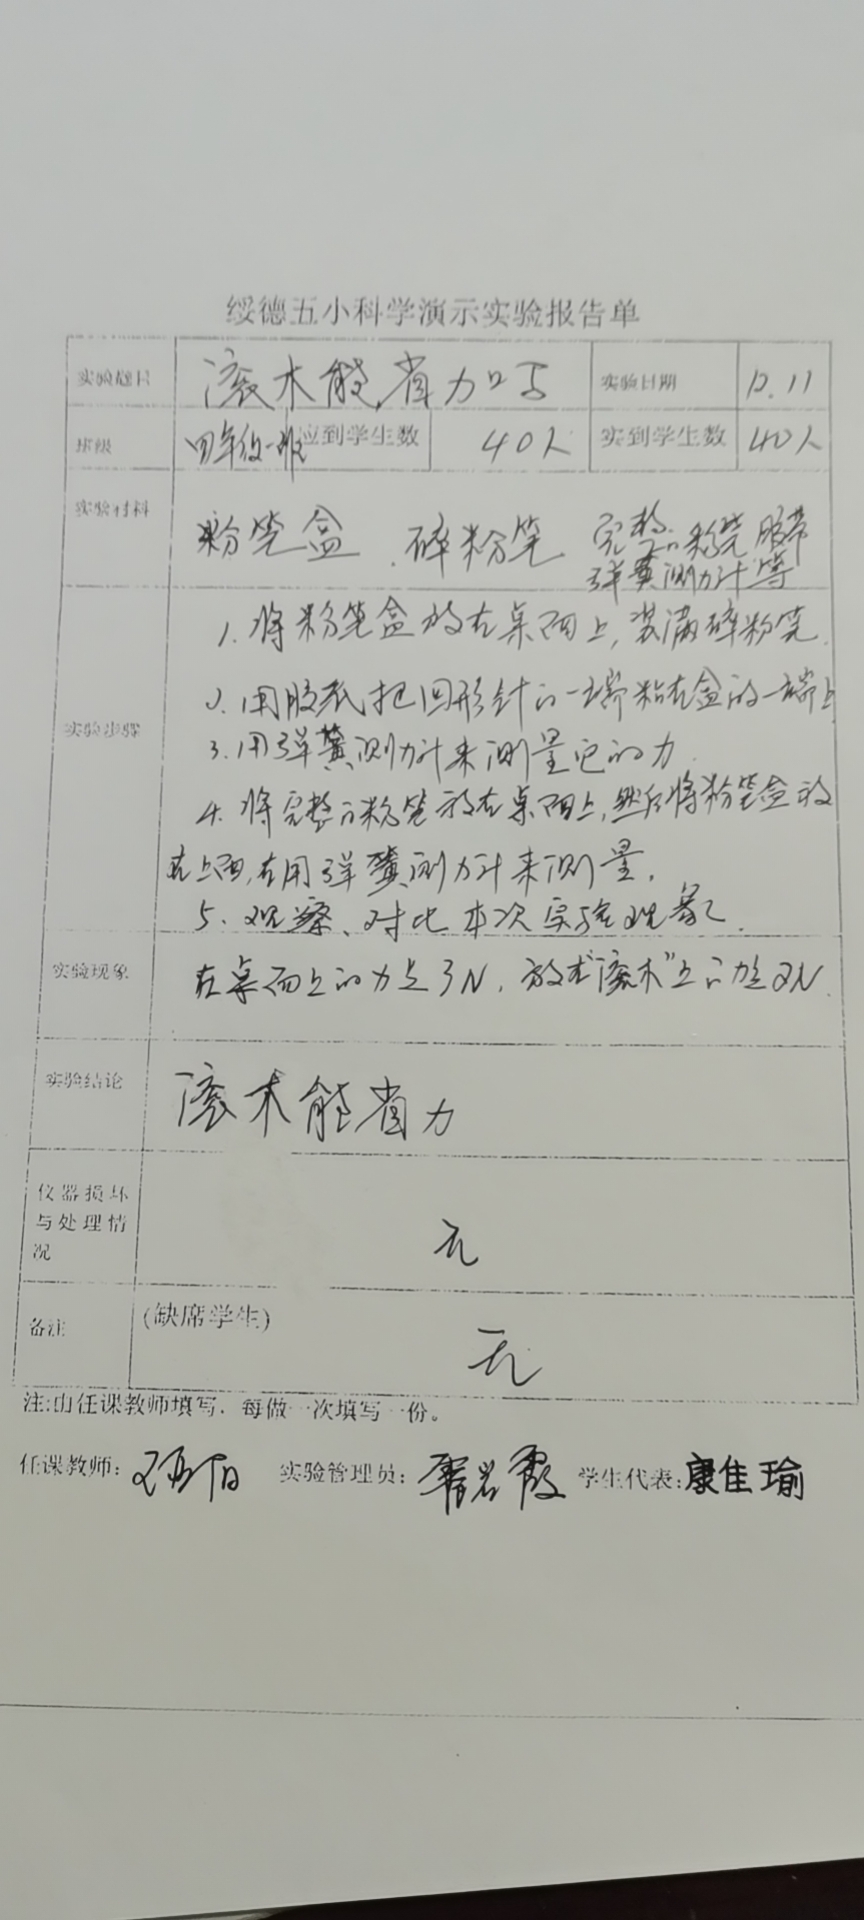 绥德五小科学演示实验报告单
实验题目 滚木能省力吗 实验日期 12.11
班级 四年级一班 应到学生数 40人 实到学生数 40人
实验材料 粉笔盒、碎粉笔 完整的粉笔 胶带
弹簧测力计等
实验步骤
1. 将粉笔盒放在桌面上,装满碎粉笔.
2. 用胶纸把回形针的一端粘在盒的一端上
3. 用弹簧测力计来测量它的力.
4. 将完整的粉笔放在桌面上,然后将粉笔盒放
在上面,在用弹簧测力计来测量.
5. 观察、对比本次实验现象.
实验现象 在桌面上的力是3N,放在"滚木"上的力是2N.
实验结论 滚木能省力
仪器损坏
与处理情
况
无
备注 (缺席学生)
无
注:由任课教师填写,每做一次填写一份。
任课教师: 实验管理员: 学生代表:康佳瑜